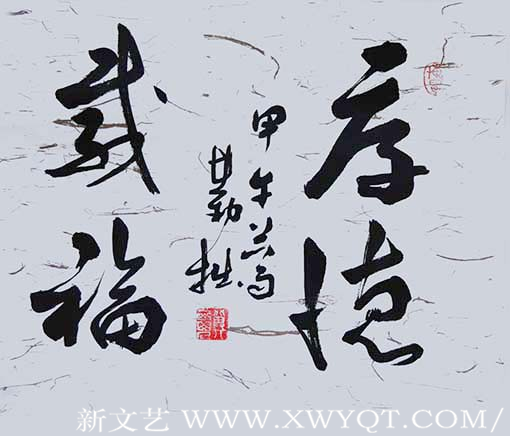 厚德
載福
甲午
勤拙
新文艺 WWW.XWYQT.COM/